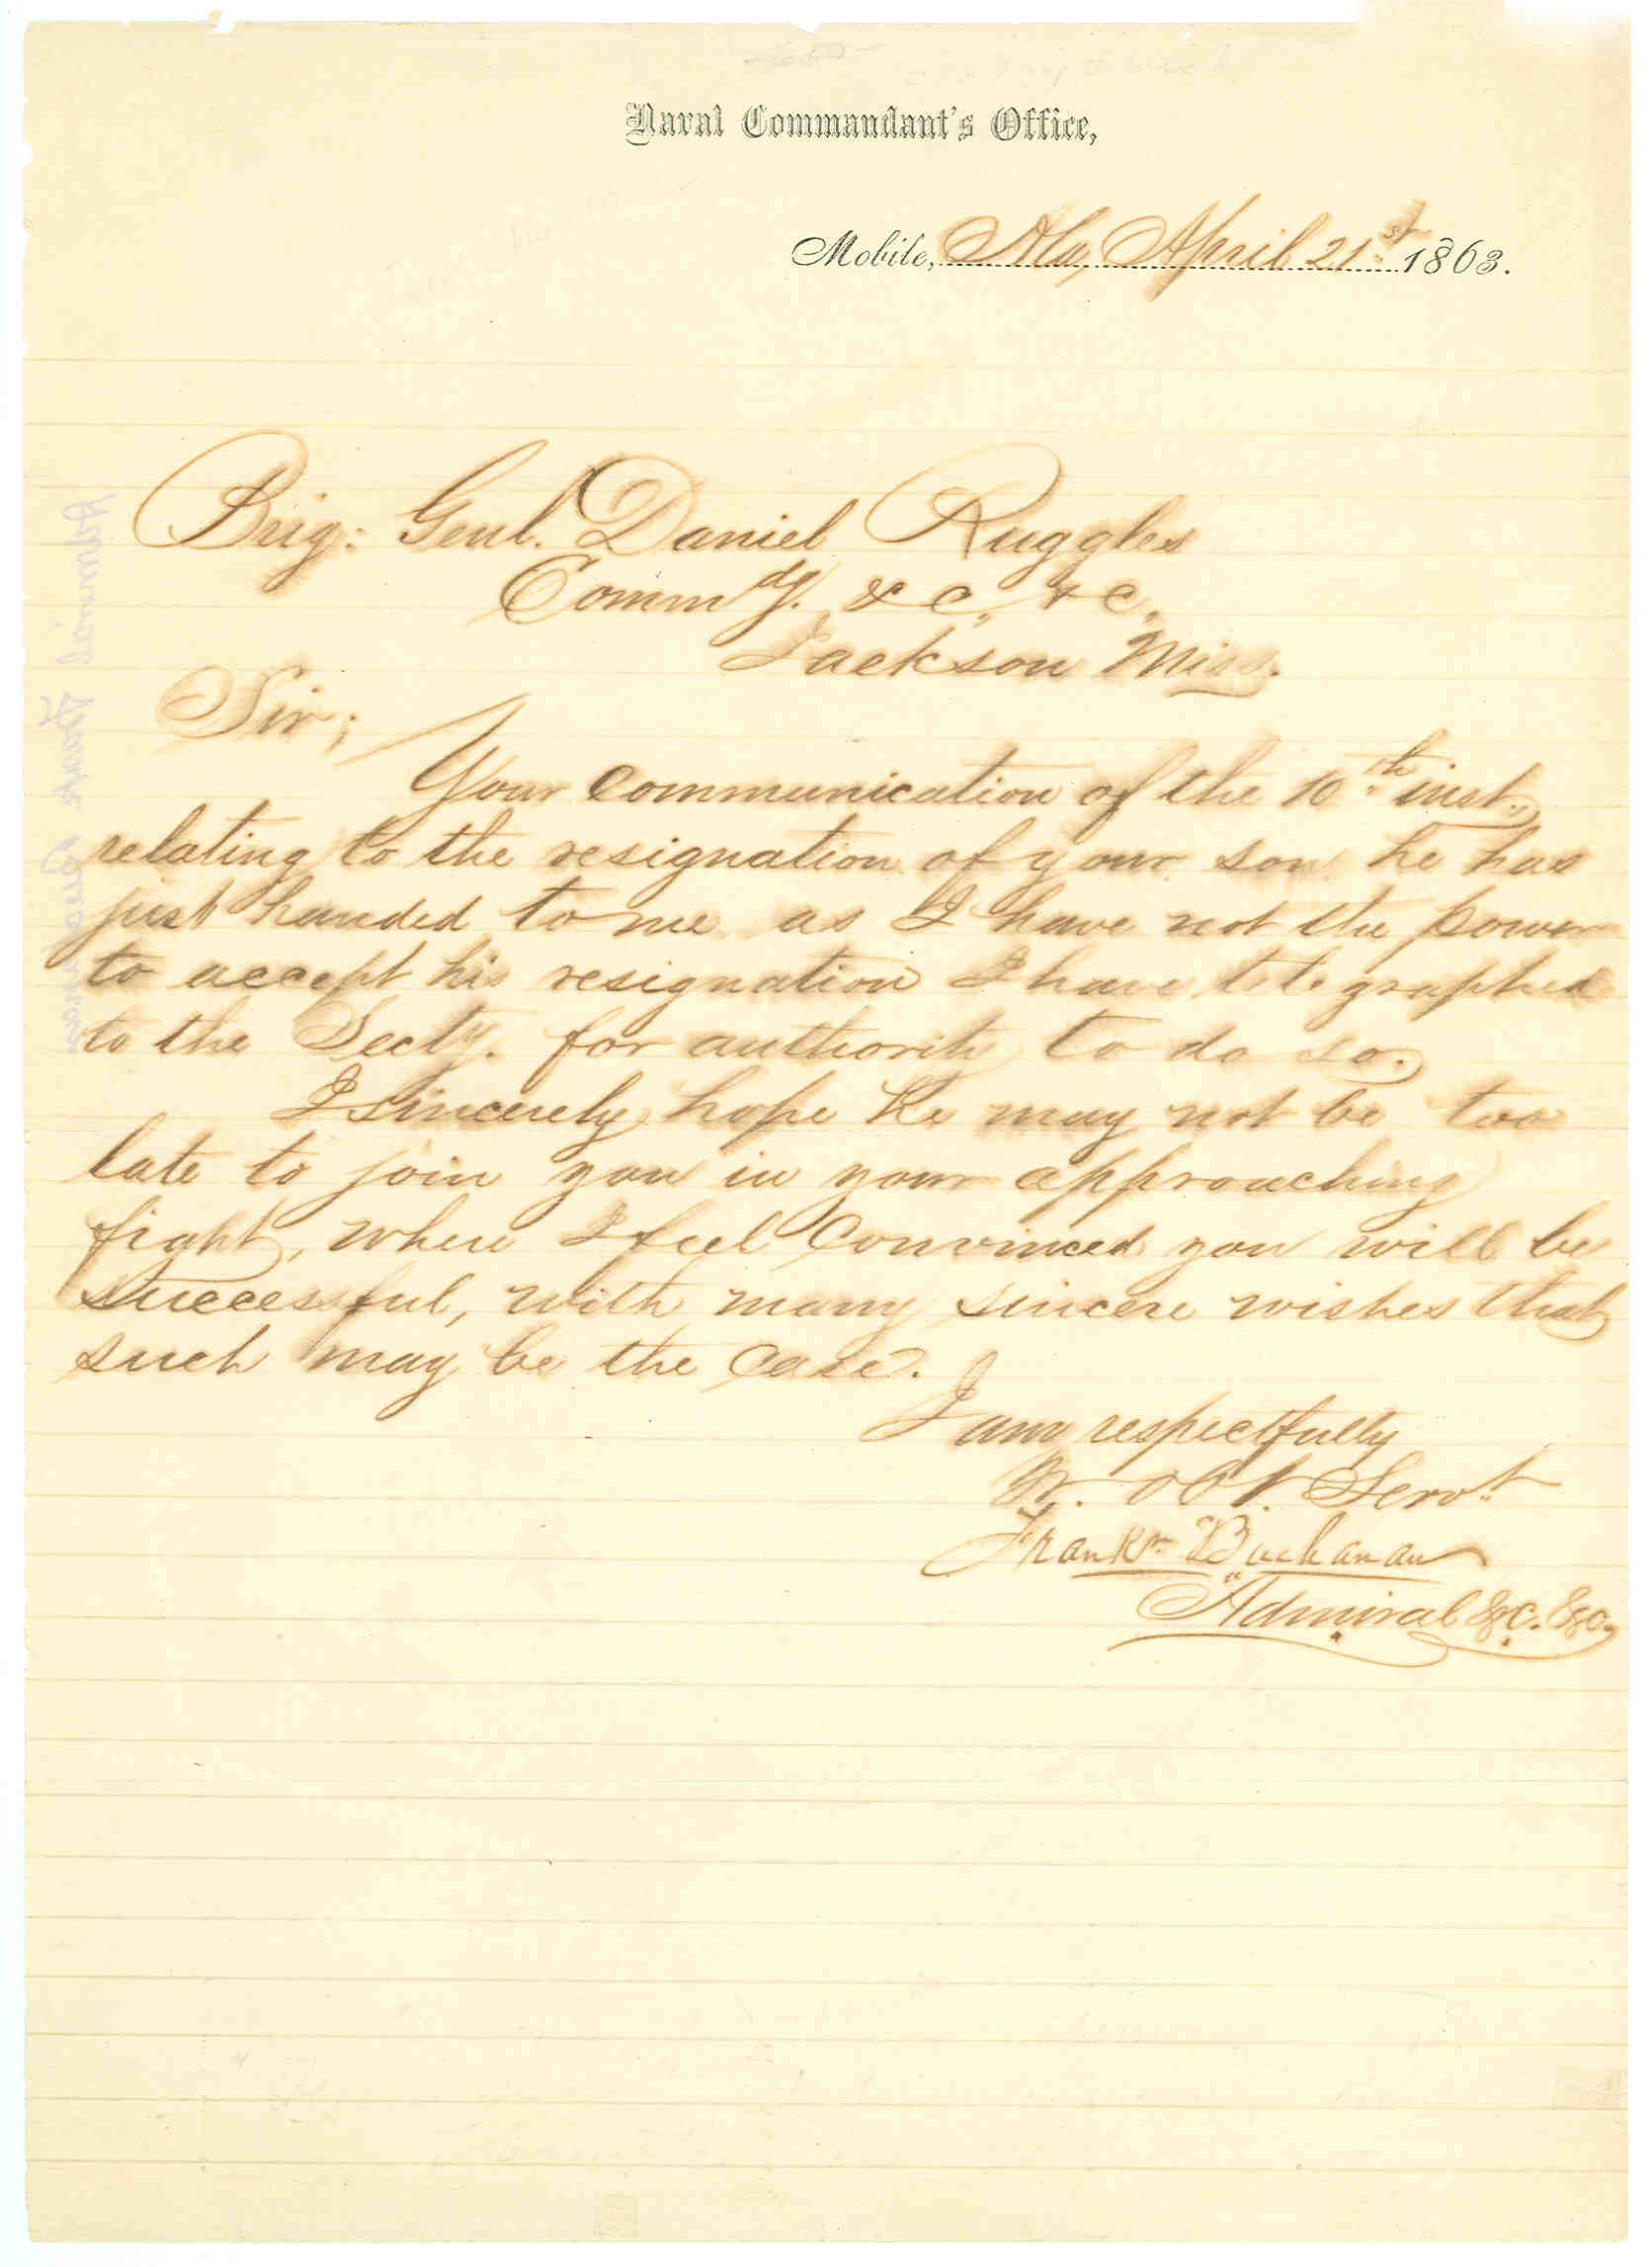 Naval Commandant's Office,
Mobile, Ala, April 21st 1863.
Brig: Genl. Daniel Ruggles
Commdg. &c, &c,
Jackson Miss.
Sir;
Your communication of the 10th inst.,
relating to the resignation of your son he has
just handed to me as I have not the power
to accept his resignation I have telegraphed
to the Secty. for authority to do so.
I sincerely hope he may not be too
late to join you in your approaching
fight, where I feel convinced you will be
successful, with many sincere wishes that
such may be the case.
I am respectfully
Yr. Obt. Servt
Frankn Buchanan
Admiral &c. &c.
Admiral Frank Buchanan